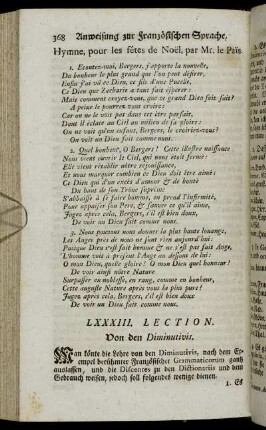 368 Anweisung zur Französischen Sprache,
Hymne, pour les fêtes de Noël, par Mr. le Païs
1. Ecoutez-moi, Bergers, j'apporte la nouvelle,
Du bonheur le plus grand que l'on peut désirer,
Enfin j'ai vû ce Dieu, ce fils d'une Pucelle,
Ce Dieu que Zacharie a tant fait espérer:
Mais comment croyez-vous, que ce grand Dieu soit fait?
A peine le pourrez vous croire:
Car on ne le voit pas dans cet être parfait,
Dont il éclate au Ciel au milieu de sa gloire:
On ne voit qu'un enfant, Bergers, le croiriez-vous?
On voit un Dieu fait comme nous.
2. Quel bonheur, O Bergers! Cette illustre naissance
Nous vient ouvrir le Ciel, qui nous étoit fermé:
Elle vient rétablir nôtre réjouissance,
Et nous marquer combien ce Dieu doit être aimé:
Ce Dieu qui d'un excès d'amour & de bonté
Du haut de son Trône suprême
S'abbaisse à se faire homme, en prend l'infirmité,
Pour appaiser son Pere, & sauver ce qu'il aime,
Jugez après cela, Bergers, s'il est bien doux,
De voir un Dieu fait comme nous.
3. Nous pouvons nous donner la plus haute louange,
Les Anges près de nous ne sont rien aujourd'hui:
Puisque Dieu s'est fait homme & ne s'est pas fait Ange,
L'homme voit à présent l'Ange au dessous de lui:
O mon Dieu, quelle gloire! O mon Dieu quel bonheur!
De voir ainsi nôtre Nature
Surpasser en noblesse, en rang, comme en bonheur,
Cette auguste Nature après vous la plus pure!
Jugez après cela, Bergers, s'il est doux
De voir un Dieu fait comme nous.
LXXXIII. LECTION.
Von den Diminutivis.
Man könte die Lehre von den Diminutivis, nach dem Exempel
berühmter Französischer Grammaticorum gantz
auslassen, und die Discentes zu den Dictionariis und dem
Gebrauch weisen, noch soll folgendes wenige dienen.
1. Es